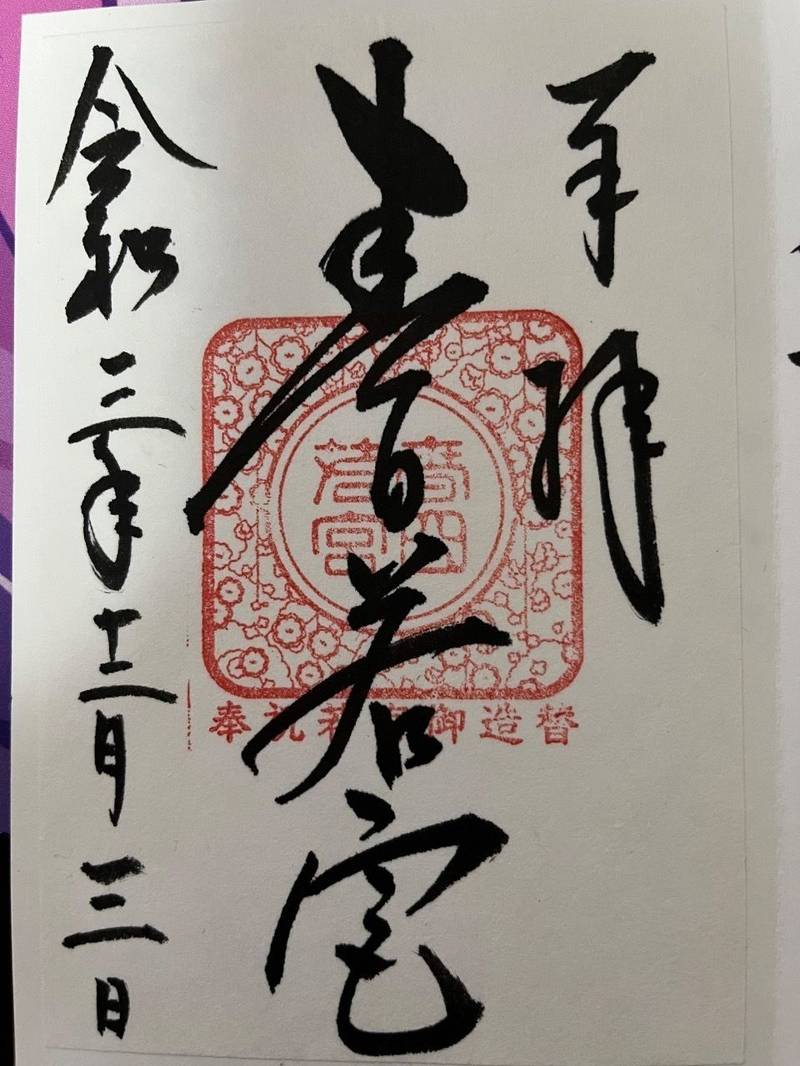 奉拝
春日若宮
令和三年十二月三日
春日
若宮
奉祝若宮御造替